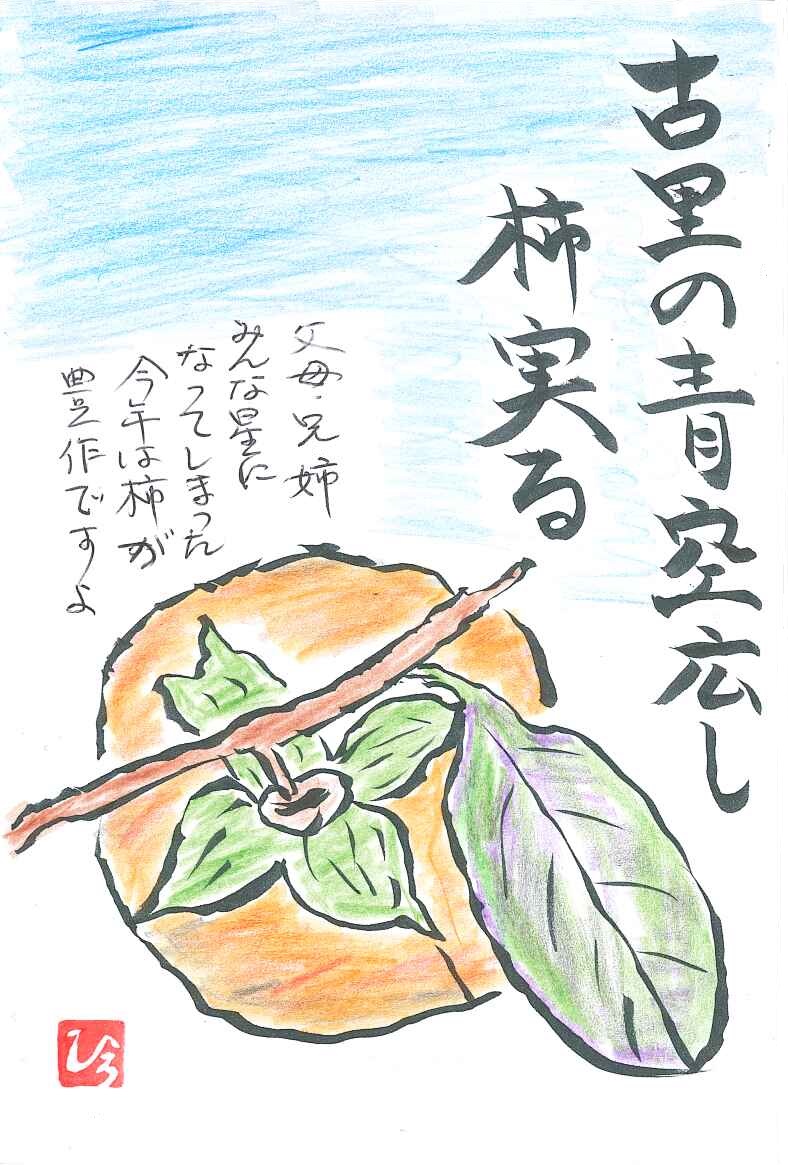 古里の青空広し
柿実る
父母・兄姉
みんな星に
なってしまった
今年は柿が
豊作ですよ
ひろ